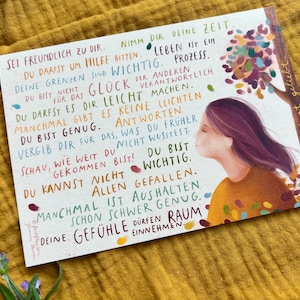 SEI FREUNDLICH ZU DIR. NIMM DIR DEINE ZEIT.
DU DARFST UM HILFE BITTEN. LEBEN IST EIN PROZESS.
DEINE GRENZEN SIND WICHTIG.
DU BIST NICHT FÜR DAS GLÜCK DER ANDEREN VERANTWORTLICH.
DU DARFST ES DIR LEICHT MACHEN.
MANCHMAL GIBT ES KEINE LEICHTEN ANTWORTEN
DU BIST GENUG.
VERGIB DIR FÜR DAS, WAS DU FRÜHER NICHT WUSSTEST.
SCHAU, WIE WEIT DU GEKOMMEN BIST! DU BIST WICHTIG.
DU KANNST NICHT ALLEN GEFALLEN.
MANCHMAL IST AUSHALTEN SCHON SCHWER GENUG.
DEINE GEFÜHLE DÜRFEN RAUM EINNEHMEN
geliebt